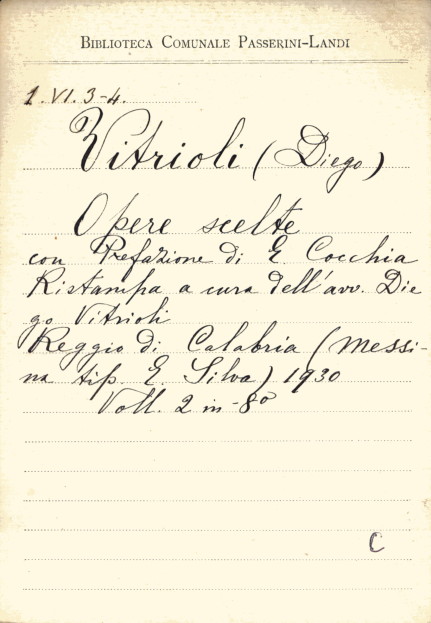 BIBLIOTECA COMUNALE PASSERINI-LANDI
1.VI.3-4.
Vitrioli (Diego)
Opere scelte
con Prefazione di E. Cocchia
Ristampa a cura dell'avv. Die
go Vitrioli
Reggio di Calabria (Messi-
na tip. E. Silva) 1930
Voll. 2 in-8º
C